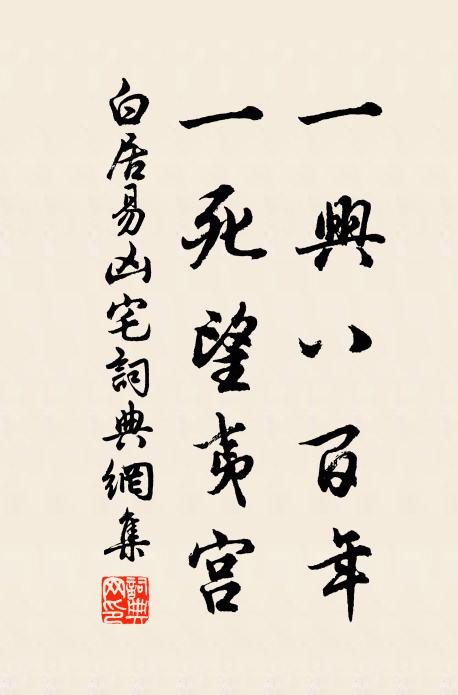 一興八百年
一死望夷宮
白居易凶宅詞典網集
詞典網印